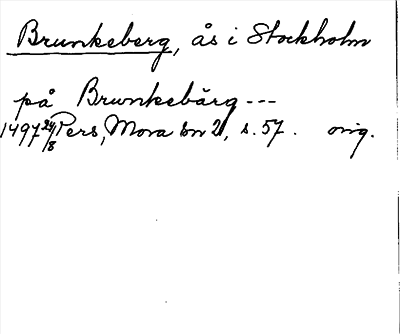 Brunkeberg, ås i Stockholm
på Brunkebärg ---
1497 24/8 Pers, Mora bn 2, s. 57. orig.